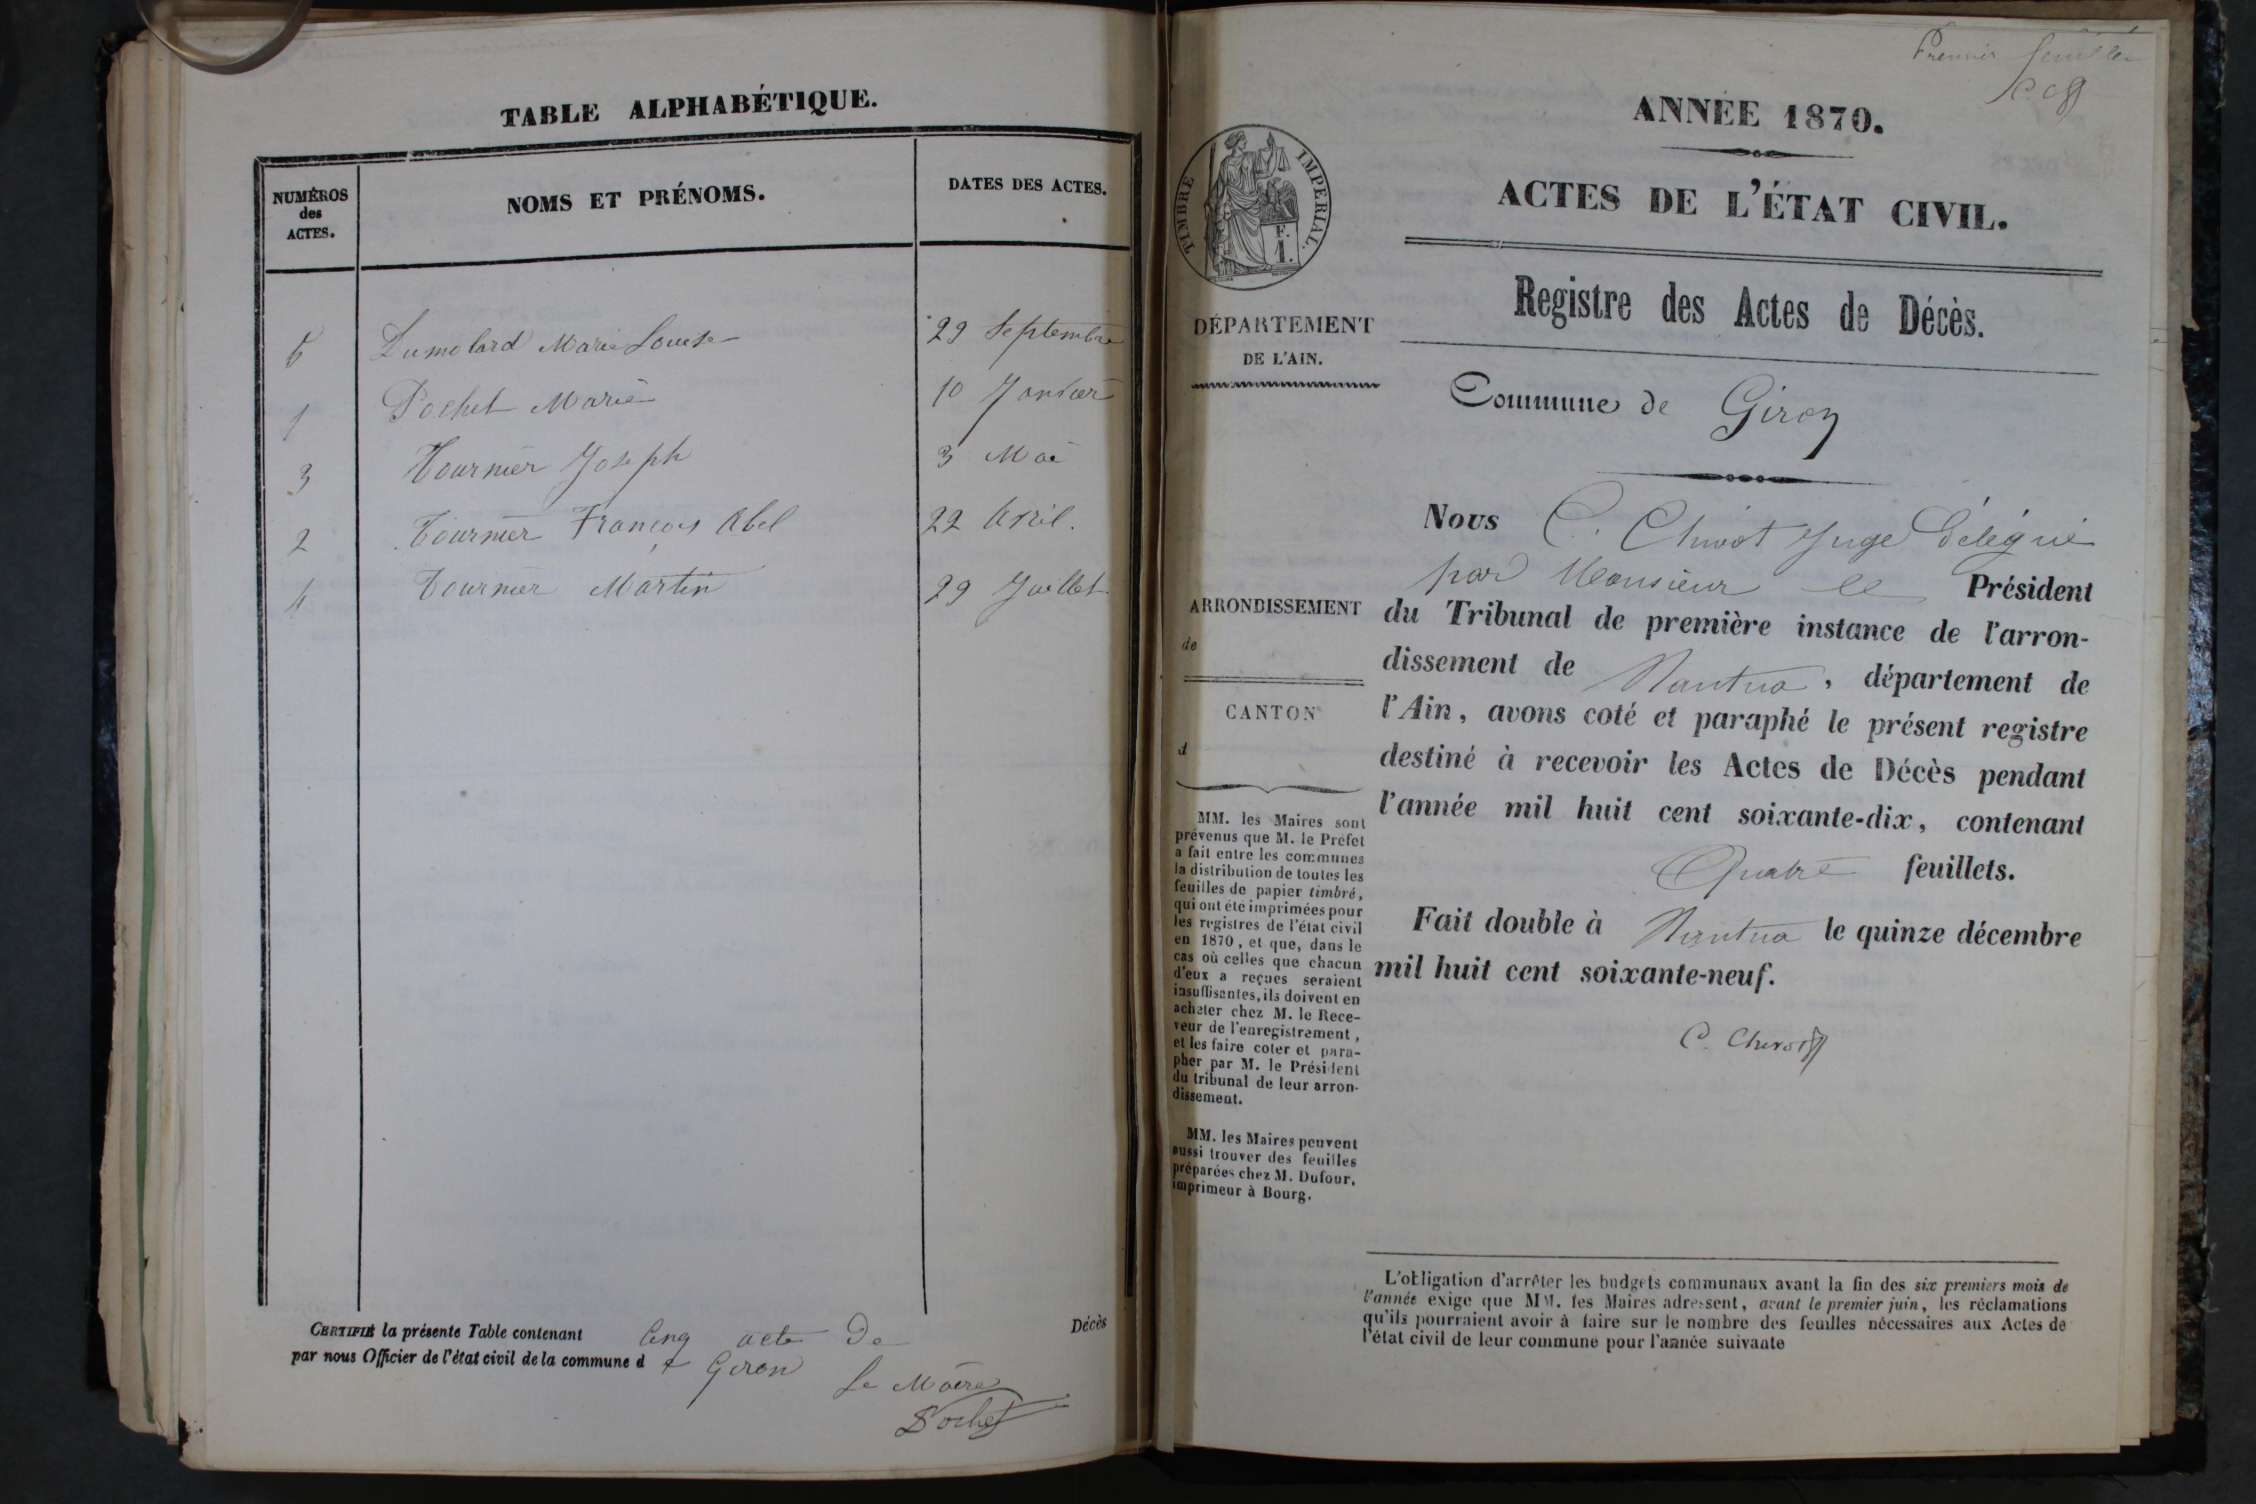 TABLE ALPHABÉTIQUE.
NUMÉROS
des
ACTES.
NOMS ET PRÉNOMS.
DATES DES ACTES.
5 Dumolard Marie Louise 29 Septembre
1 Pochet Marie 10 Janvier
3 Tournier Joseph 3 Mai
2 Tournier François Abel 22 Avril.
4 Tournier Martin 29 Juillet
CERTIFIÉ la présente Table contenant Cinq acte De Décès
par nous Officier de l'état civil de la commune de Giron
Le Maire
Pochet
Premier feuillet
ANNÉE 1870.
ACTES DE L'ÉTAT CIVIL.
TIMBRE IMPERIAL.
F.
1.
Registre des Actes de Décès.
DÉPARTEMENT
DE L'AIN.
Commune de Giron
Nous C. Chivot Juge Délégué
par Monsieur le Président
du Tribunal de première instance de l'arron-
dissement de Nantua, département de
l'Ain, avons coté et paraphé le présent registre
destiné à recevoir les Actes de Décès pendant
l'année mil huit cent soixante-dix, contenant
Quatre feuillets.
Fait double à Nantua le quinze décembre
mil huit cent soixante-neuf.
C. Chivot
ARRONDISSEMENT
de
CANTON
d
MM. les Maires sont
prévenus que M. le Préfet
a fait entre les communes
la distribution de toutes les
feuilles de papier timbré,
qui ont été imprimées pour
les registres de l'état civil
en 1870, et que, dans le
cas où celles que chacun
d'eux a reçues seraient
insuffisantes, ils doivent en
acheter chez M. le Rece-
veur de l'enregistrement,
et les faire coter et para-
pher par M. le Président
du tribunal de leur arron-
dissement.
MM. les Maires peuvent
aussi trouver des feuilles
préparées chez M. Dufour,
imprimeur à Bourg.
L'obligation d'arrêter les budgets communaux avant la fin des six premiers mois de
l'année exige que MM. les Maires adressent, avant le premier juin, les réclamations
qu'ils pourraient avoir à faire sur le nombre des feuilles nécessaires aux Actes de
l'état civil de leur commune pour l'année suivante